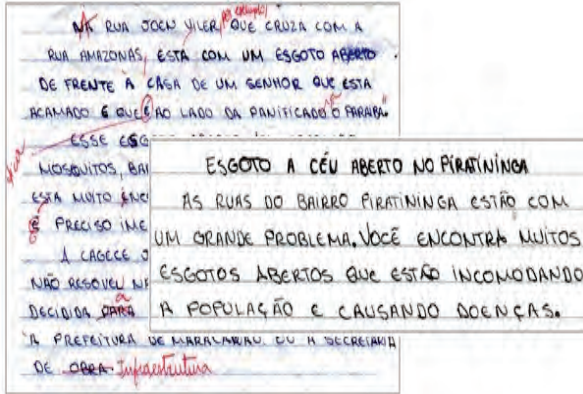 NA RUA JOEN VILER, QUE CRUZA COM A
RUA AMAZONAS, ESTA COM UM ESGOTO ABERTO
DE FRENTE À CASA DE UM SENHOR QUE ESTA
ACAMADO E QUE É AO LADO DA PANIFICADO "O PARAIBA"
ESSE ESG
MOSQUITOS, BAI
ESTA MUITO ENC
É PRECISO IME
A CAGECE J
NÃO RESOVEU NE
DECIDIDA PARA a
A PREFEITURA DE MARACANAU OU A SECRETARIA
DE OBRA Infraestrutura
ESGOTO A CÉU ABERTO NO PIRATININGA
AS RUAS DO BAIRRO PIRATININGA ESTÃO COM
UM GRANDE PROBLEMA. VOCÊ ENCONTRA MUITOS
ESGOTOS ABERTOS QUE ESTÃO INCOMODANDO
A POPULAÇÃO E CAUSANDO DOENÇAS.